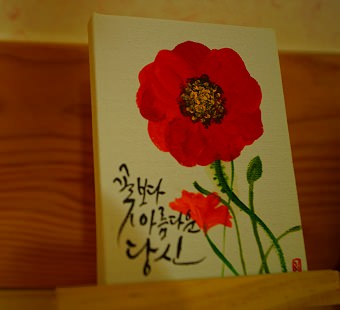 꽃보다
아름다운
당신